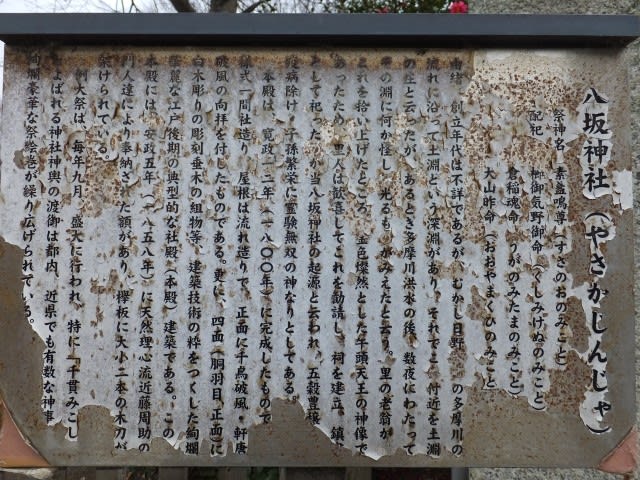 八坂神社(やさかじんじゃ)
祭神名 素盞鳴尊(すさのおのみこと)
配祀 櫛御気野御命(くしみけぬのみこと)
倉稲魂命(うがのみたまのみこと)
大山昨命(おおやまくひのみこと)
由緒 創立年代は不詳であるが、むかし日野 の多摩川の
流れに沿って土淵という深淵があり、それでこ 付近を土淵
の庄と云ったが、あるとき多摩川洪水の後、数夜にわたって
の淵に何か怪し 光るものがみえたと云う。里の老翁が
これを拾い上げたところ、金色燦然とした午頭天王の神像で
あったため、里人は歓喜してこれを勧請し、祠を建立、鎮守
として祀ったのが当八坂神社の起源と云われ、五穀豊穣、
疫病除け、子孫繁栄に霊験無双の神なりとしてある。
本殿は、寛政一二年(一八〇〇年)に完成したもので
様式一間社造り、屋根は流れ造りで、正面に千鳥破風・軒唐
破風の向拝を付したものである。更に、四面(胴羽目、正面)に
白木彫りの彫刻垂木の組物等、建築技術の粋をつくした絢爛
華麗な江戸後期の典型的な社殿(本殿)建築である。この
本殿には、安政五年(一八五八年)に天然理心流近藤周助の
門人達により奉納された額があり、欅板に大小二本の木刀が
掛けられている。
例大祭は、毎年九月、盛大に行われ、特に「千貫みこし
とよばれる神社神輿の渡御は都内、近県でも有数な神事
絢爛豪華な祭絵巻が繰り広げられている。